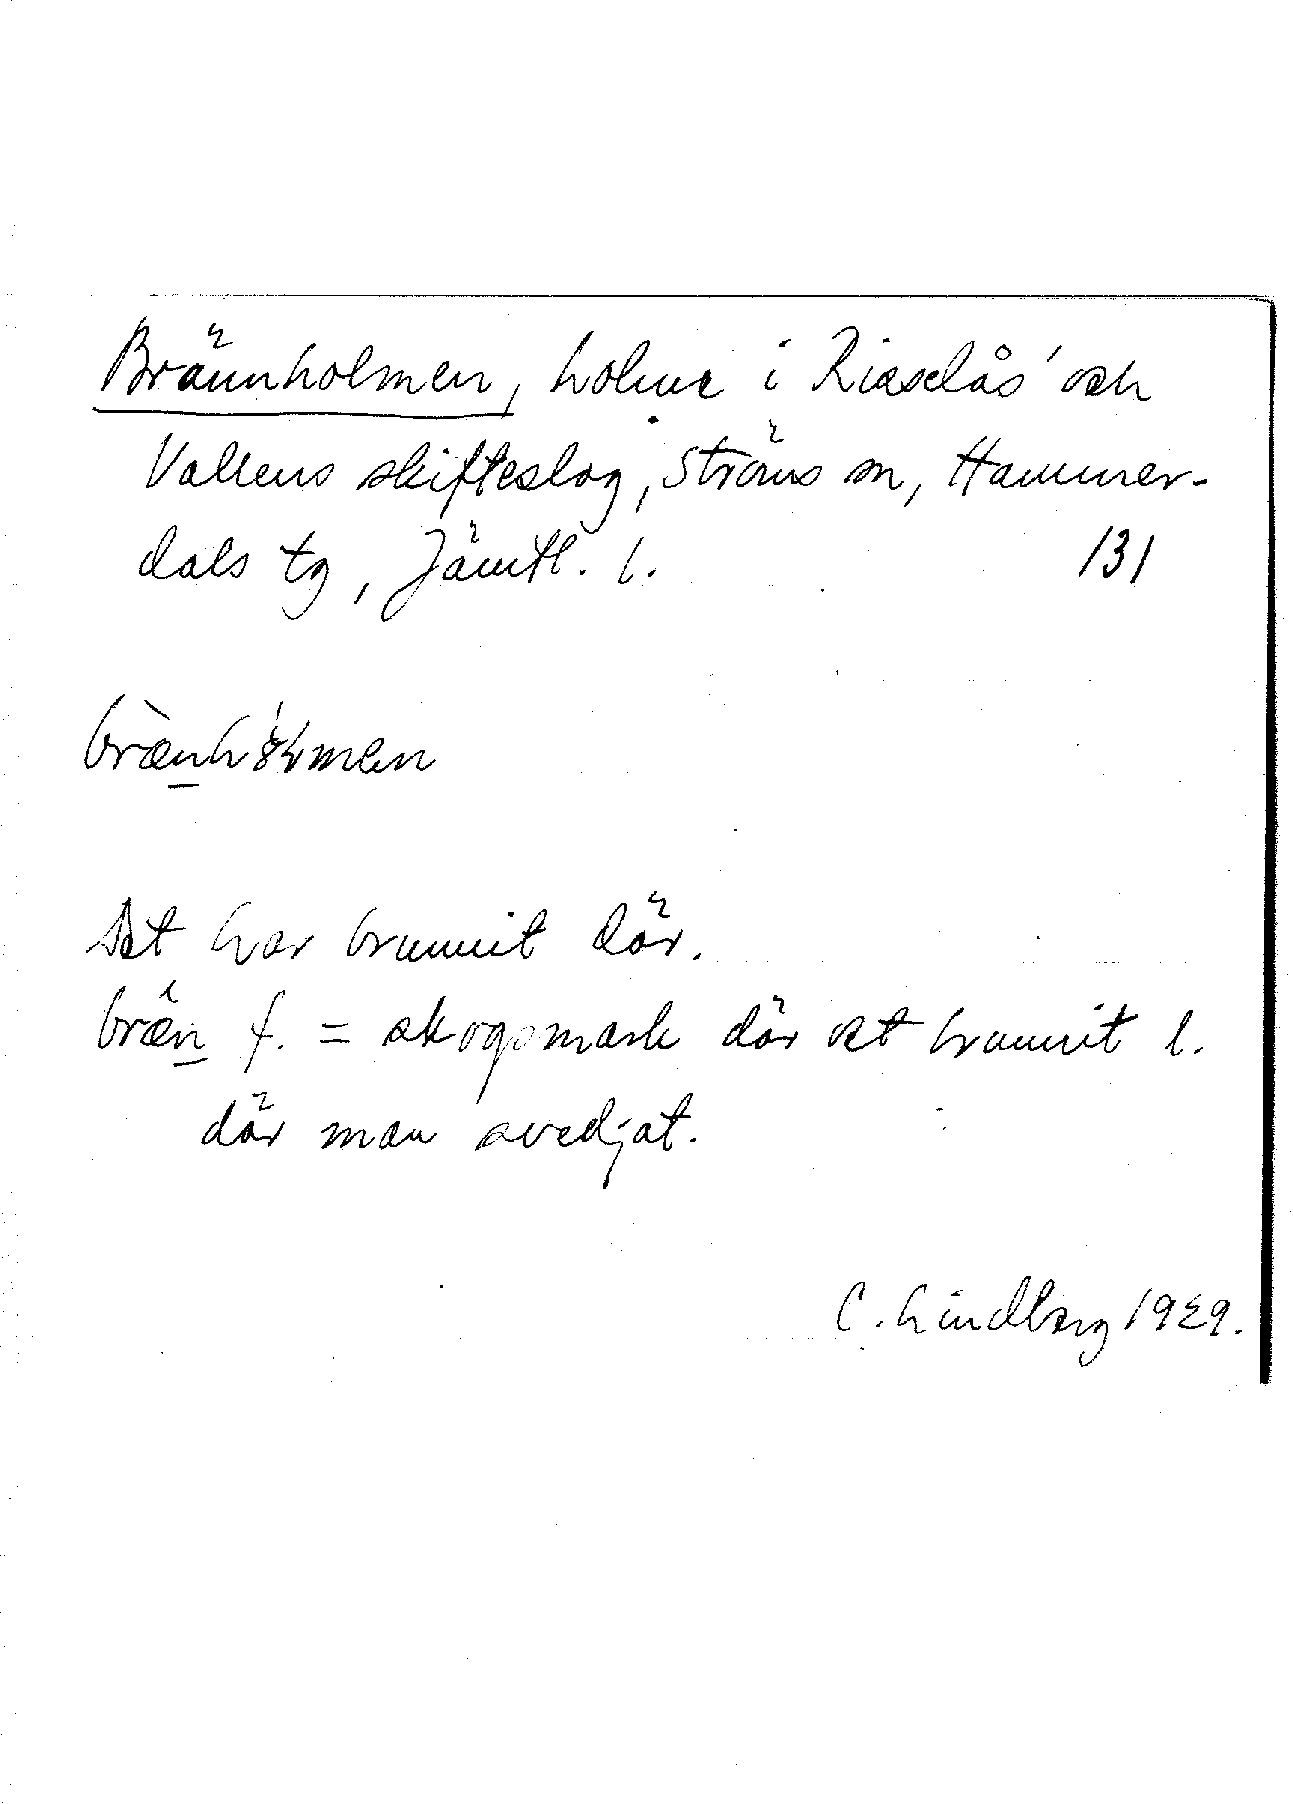 Brännholmen, holme i Risselås' och
Vallens skifteslag, Ströms sn, Hammer-
dals tg, Jämtl. l.
131
Det har brunnit där.
bræn f. = skogsmark där det brunnit l.
där man svedjat.
C. Lindberg 1929.